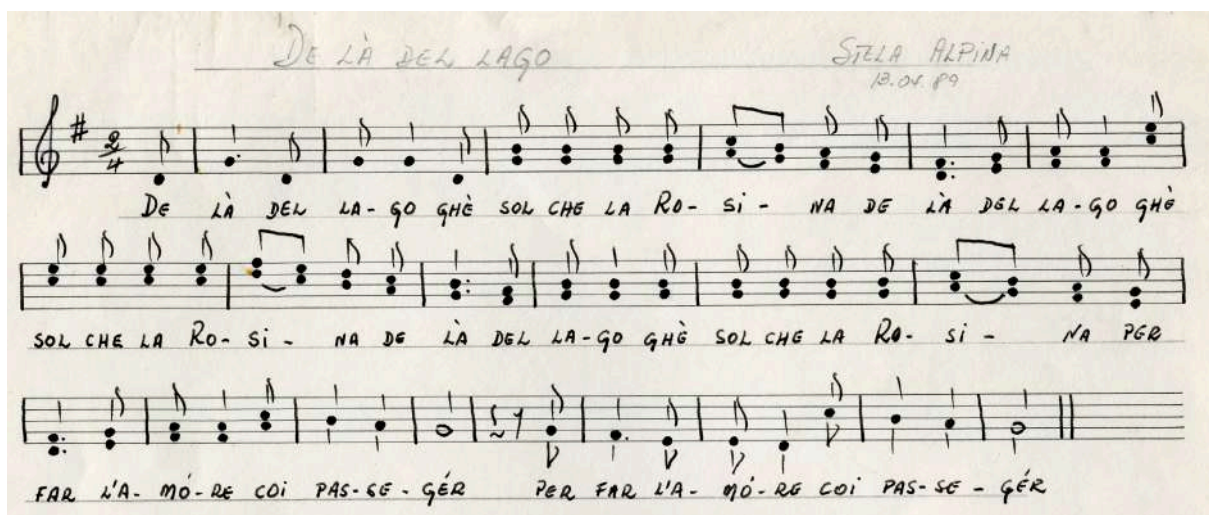 DE LÀ DEL LAGO
STELA ALPINA
13.04.89
2/4
DE LÀ DEL LA-GO GHÈ SOL CHE LA RO-SI-NA DE LÀ DEL LA-GO GHÈ
SOL CHE LA RO-SI-NA DE LÀ DEL LA-GO GHÈ SOL CHE LA RO-SI-NA PER
FAR L'A-MÓ-RE COI PAS-SE-GÉR PER FAR L'A-MÓ-RE COI PAS-SE-GÉR